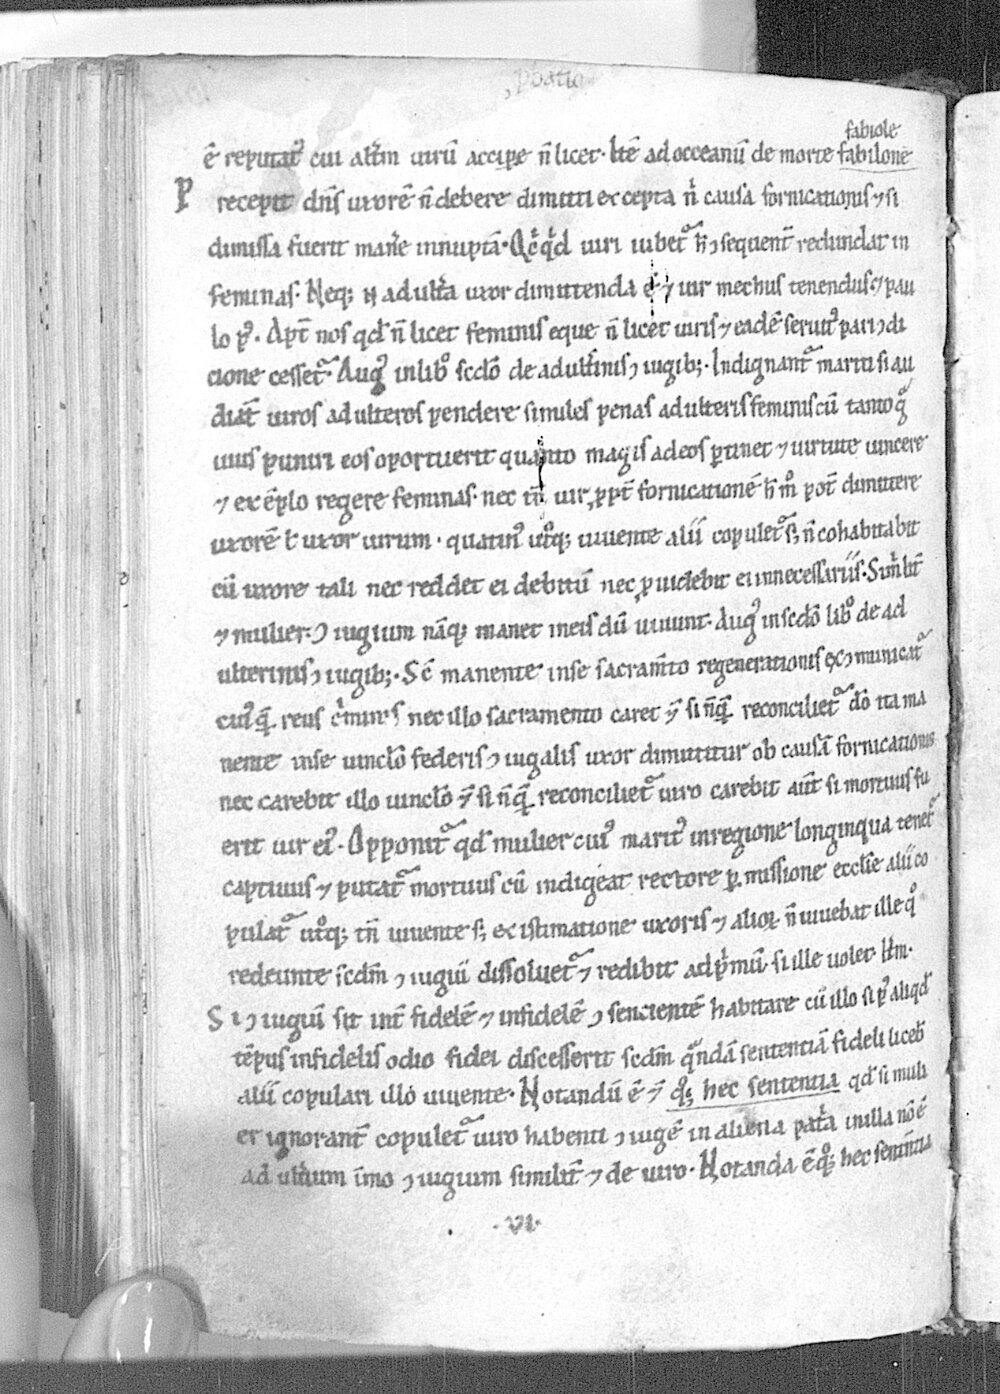 ꝓbatio
fabiole
ē reputat᷑ cui alt̄m uirū accipe n̄ licet. Itē ad occeanū de morte fabilone
P recepit dn̄s uxorē n̄ debere dimitti excepta n̄ causa fornicationis ⁊ si
dimissa fuerit manē innuptā. Qc̄qd uiri iubet᷑ h̄ ↄsequent̄ redundat in
feminas. Neq; n̄ adult̄a uxor dimittenda ē ⁊ uir mechus tenendus. ⁊ pau
lo pꝰ. Apt̄ nos qd̄ n̄ licet feminis eque n̄ licet uiris ⁊ eadē seruitꝰ pari ↄdi
cione cesset᷑. Augꝰ in libº scdo de adult̄inis ↄiugib;. Indignant᷑ mariti si au
diāt uiros adulteros pendere similes penas adulteris feminis cū tanto gᷓ
uius puniri eos oportuerit quanto magis ad eos ꝑtinet ⁊ uirtute uincere
⁊ exēplo regere feminas. nec tn̄ uir ꝓpt̄ fornicationē h̄ mº pot̄ dimittere
uxorē ł uxor uirum. quatinꝰ utºq; uiuente alii copulet᷑ s; n̄ cohabitabit
cū uxore tali nec reddet ei debitū nec ꝓuidebit ei in necessariis. Simłit̄
⁊ mulier. ↄiugium nāq; manet in eis dū uiuunt. Augꝰ in scdo libº de ad
ulterinis ↄiugib;. Sc̄ manente in se sacram̄to regenerationis excↄmunicat᷑
cuiꝰq̄ reus c̄minis nec illo sacramento caret ⁊̄ si nūq̄ reconciliet᷑ dō ita ma
nente in se uincło federis ↄiugalis uxor dimittitur ob causā fornicationis
nec carebit illo uincło ⁊̄ si nūq̄ reconciliet᷑ uiro carebit aūt si mortuus fu
erit uir eiꝰ. Opponit᷑ qd̄ mulier cuiꝰ maritꝰ in regione longinqua tenet᷑
captiuus ⁊ putat᷑ mortuus cū indigeat rectore ꝑmissione ecclīe alii co
pulat᷑ utºq; tn̄ uiuente s; existimatione uxoris ⁊ alioꝝ n̄ uiuebat ille qº
redeunte scdm̄ ↄiugiū dissoluet᷑ ⁊ redibit ad pⁱmū. si ille uolet. Itm̄.
Si ↄiugiū sit int̄ fidelē ⁊ infidelē ↄsencientē habitare cū illo si pꝰ aliqd̄
tēpus infidelis odio fidei discesserit scdm̄ qᷓndā sententiā fideli licebit
alii copulari illo uiuente. Notandū ē ⁊̄ qꝫ hec sententia qd̄ si muli
er ignorant̄ copulet᷑ uiro habenti ↄiugē in aliena pat̄a in illa nō ē
adult̄ium īmo ↄiugium similit̄ ⁊ de uiro. Notanda ē qꝫ hec sentn̄tia
.VI.